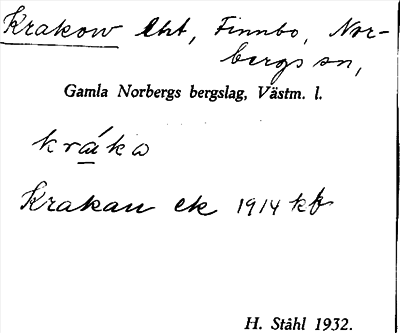 Krakow lht, Finnbo, Nor-
bergs sn,
Gamla Norbergs bergslag, Västm. l.
kráko
Krakan ek 1914 kb
H. Ståhl 1932.